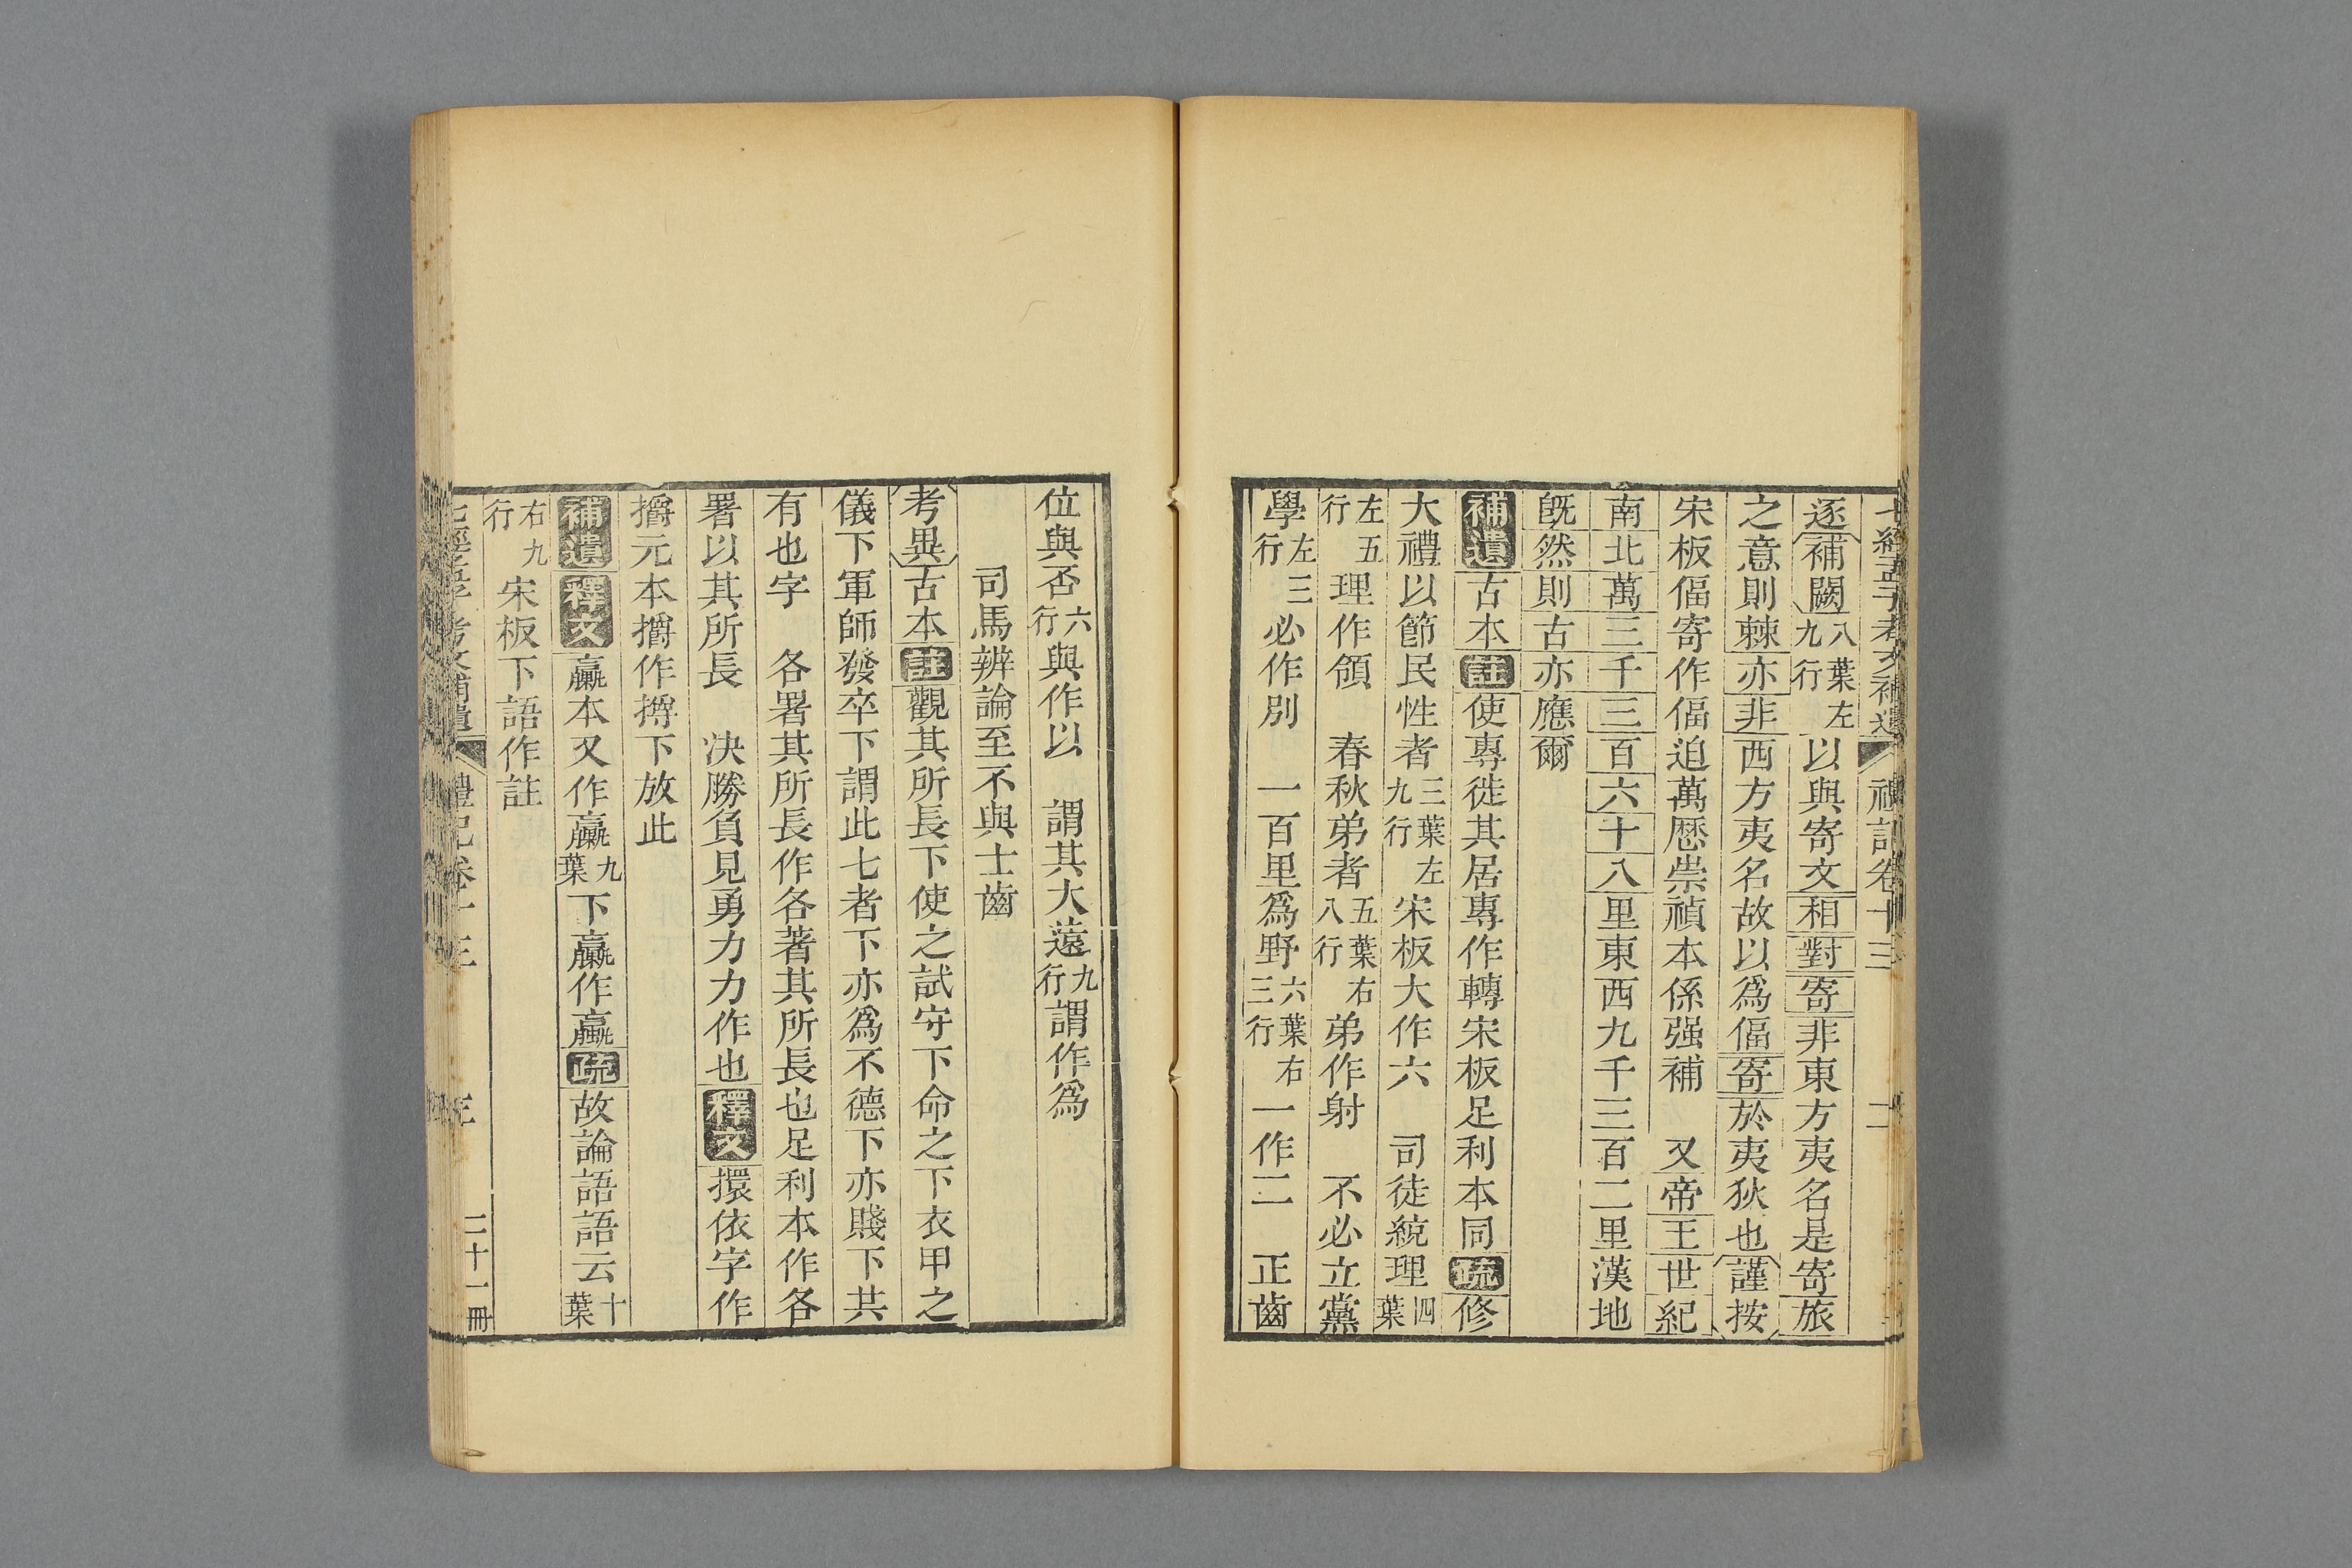 七經孟子考文補遺 禮記卷十三 二
逐補闕八葉左九行以與寄文相對寄非東方夷名是寄旅
之意則棘亦非西方夷名故以爲偪寄於夷狄也謹按
宋板偪寄作偪迫萬歷崇禎本係强補 又帝王世紀
南北萬三千三百六十八里東西九千三百二里漢地
旣然則古亦應爾
補遺古本註使專徙其居專作轉宋板足利本同疏修
大禮以節民性者三葉左九行宋板大作六 司徒統理四葉
左五行理作領 春秋弟者五葉右八行弟作射 不必立黨
學左三行必作別 一百里爲野六葉右三行一作二 正齒
位與否六行與作以 謂其大遠九行謂作爲
司馬辨論至不與士齒
考異古本註觀其所長下使之試守下命之下衣甲之
儀下軍師發卒下謂此七者下亦爲不德下亦賤下共
有也字 各署其所長作各著其所長也足利本作各
署以其所長 決勝負見勇力力作也釋文擐依字作
擐元本擐作㩋下放此
補遺釋文臝本又作羸九葉下臝作羸疏故論語語云十葉
右九行宋板下語作註
七經孟子考文補遺 禮記卷十三 三 二十一冊